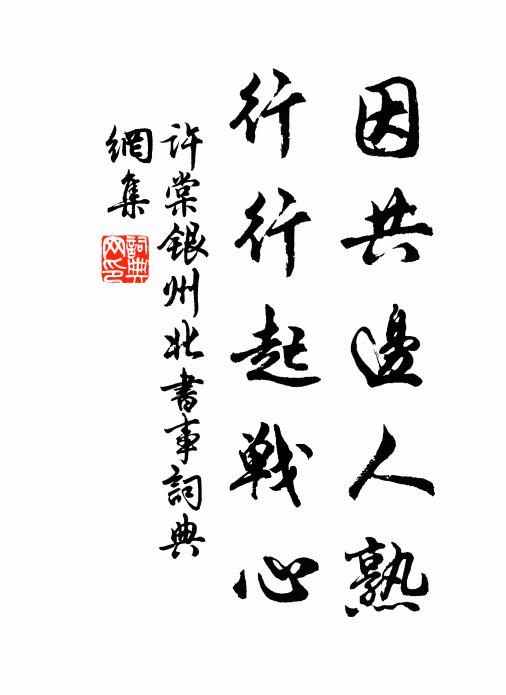 因共邊人熟
行行起戰心
許棠銀州北書事詞典
網集
詞典網印